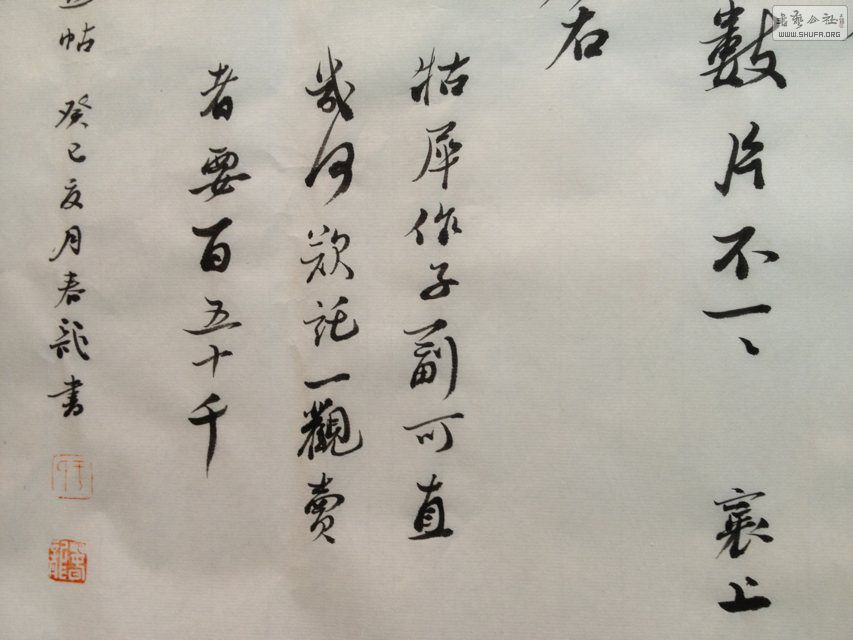 書藝公社
WWW.SHUFA.ORG
數片不一、 襄上
右
牯犀作子一副可直
幾何欲託一觀賣
者要百五十千
帖 癸巳夏月春龍書